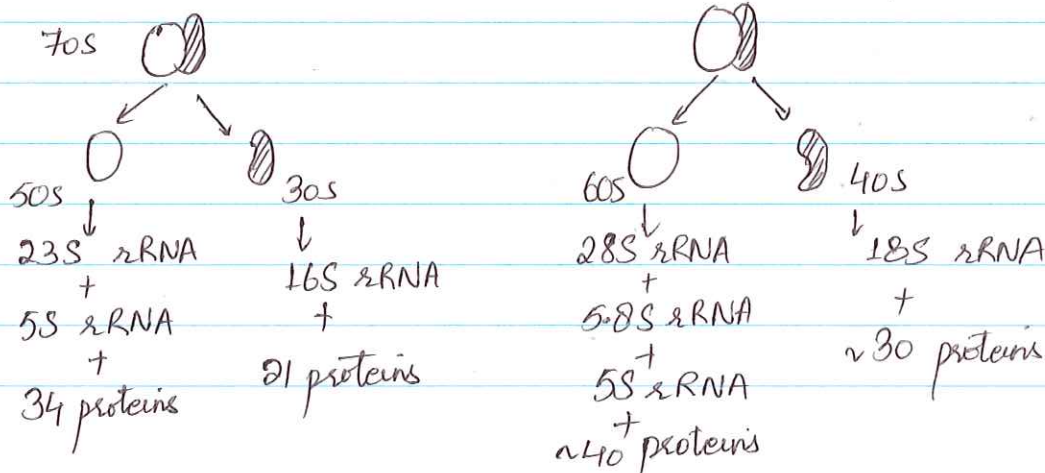 70S
50S
30S
23S rRNA
+
5S rRNA
+
34 proteins
16S rRNA
+
21 proteins
60S
40S
28S rRNA
+
5.8S rRNA
+
5S rRNA
+
~40 proteins
18S rRNA
+
~30 proteins